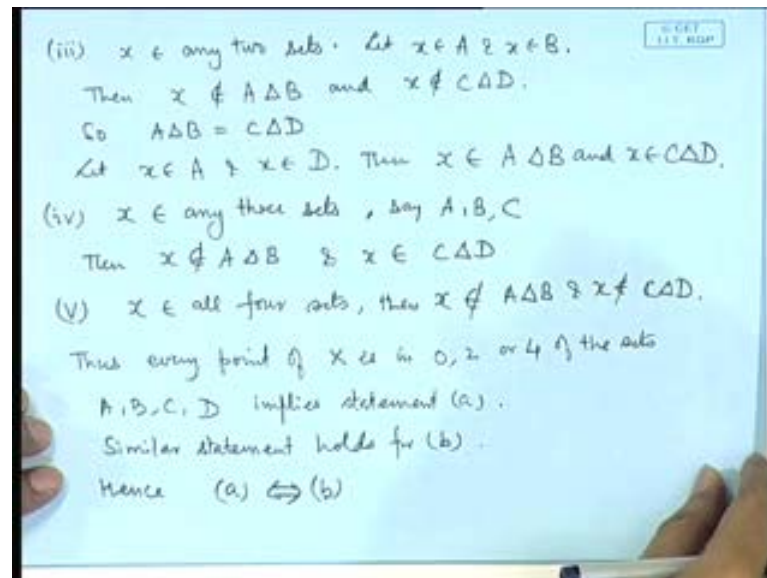 (iii) x ∈ any two sets. Let x ∈ A & x ∈ B.
Then x ∉ A Δ B and x ∉ C Δ D.
So A Δ B = C Δ D
Let x ∈ A & x ∈ D. Then x ∈ A Δ B and x ∈ C Δ D.
(iv) x ∈ any three sets, say A, B, C
Then x ∉ A Δ B & x ∈ C Δ D
(v) x ∈ all four sets, then x ∉ A Δ B & x ∉ C Δ D.
Thus every point of X is in 0, 2 or 4 of the sets
A, B, C, D implies statement (a).
Similar statement holds for (b).
Hence (a) ⇔ (b)
I.I.T. KGP